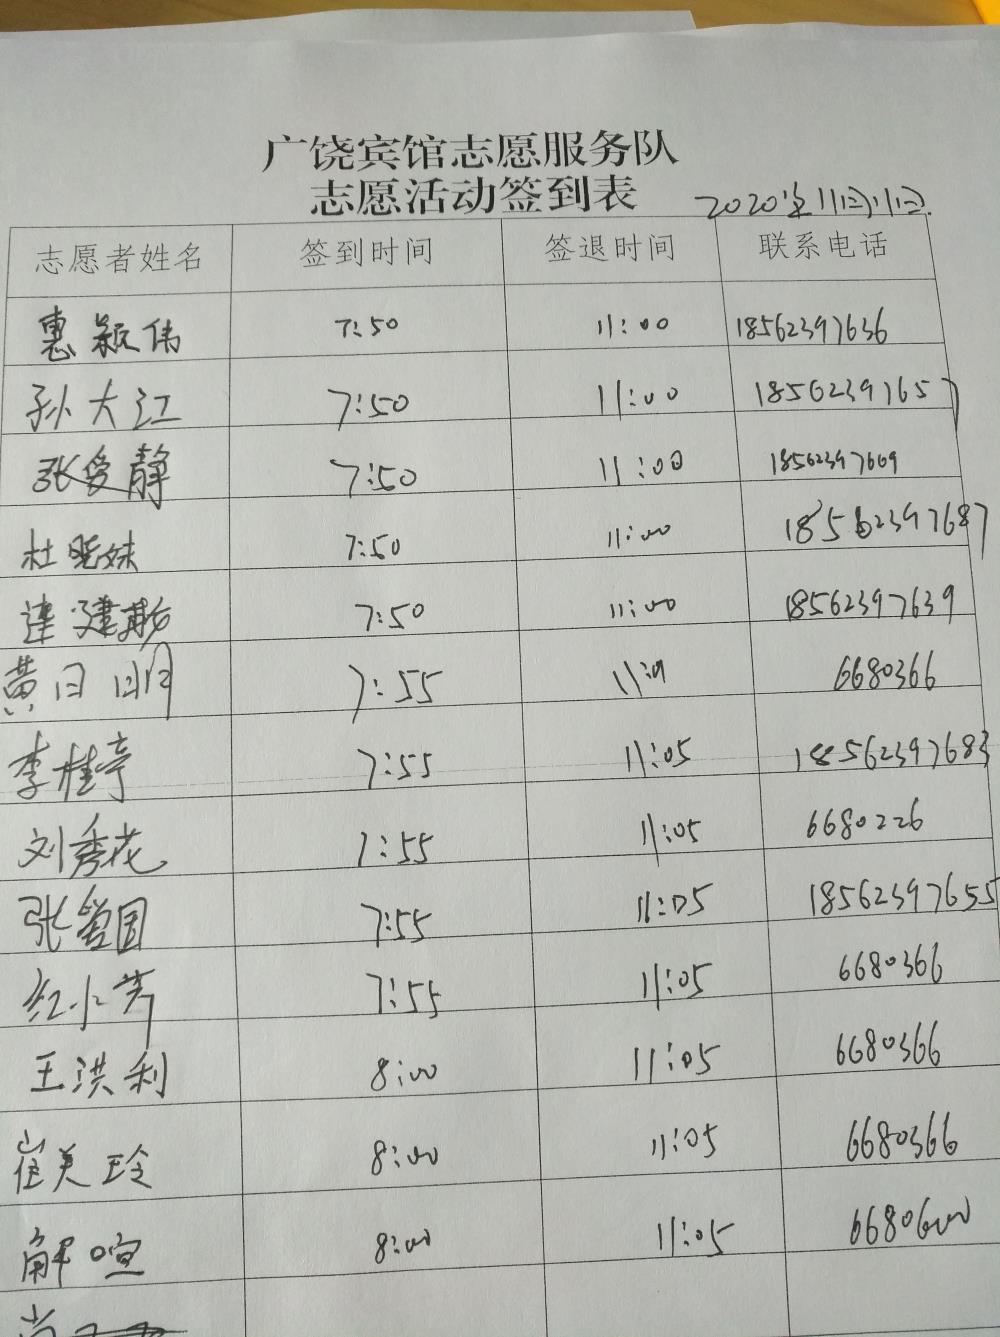 广饶宾馆志愿服务队
志愿活动签到表
2020年11月11日
志愿者姓名 签到时间 签退时间 联系电话
惠颖伟 7:50 11:00 18562397636
孙大江 7:50 11:00 18562397657
张爱静 7:50 11:00 18562397609
杜晓妹 7:50 11:00 18562397687
建 7:50 11:00 18562397639
黄日明 7:55 6680366
李桂亭 7:55 11:05 18562397683
刘秀花 7:55 11:05 6680226
张爱国 7:55 11:05 18562397655
红小芳 7:55 11:05 6680366
王洪利 8:00 11:05 6680366
崔美玲 8:00 11:05 6680366
解喧 8:00 11:05 6680600